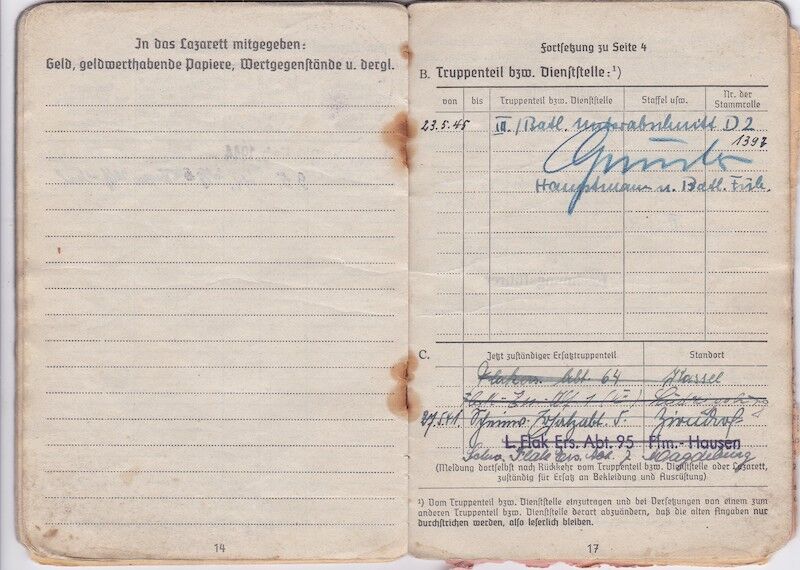 In das Lazarett mitgegeben:
Geld, geldwerthabende Papiere, Wertgegenstände u. dergl.
14
Fortsetzung zu Seite 4
B. Truppenteil bzw. Dienststelle:¹)
von bis Truppenteil bzw. Dienststelle Staffel usw. Nr. der Stammrolle
23.5.45 III./Batl. Unterabschnitt D2
1397
Hauptmann u. Batl. Füh.
C. Jetzt zuständiger Ersatztruppenteil Standort
Abt. 64 Kassel
27.5.41. Scheinw. Ersatzabt. 5.
L. Flak Ers. Abt. 95 Ffm.-Hausen
Schw. Flak Ers. Abt. 7 Magdeburg
(Meldung dortselbst nach Rückkehr vom Truppenteil bzw. Dienststelle oder Lazarett,
zuständig für Ersatz an Bekleidung und Ausrüstung)
¹) Vom Truppenteil bzw. Dienststelle einzutragen und bei Versetzungen von einem zum
anderen Truppenteil bzw. Dienststelle derart abzuändern, daß die alten Angaben nur
durchstrichen werden, also leserlich bleiben.
17